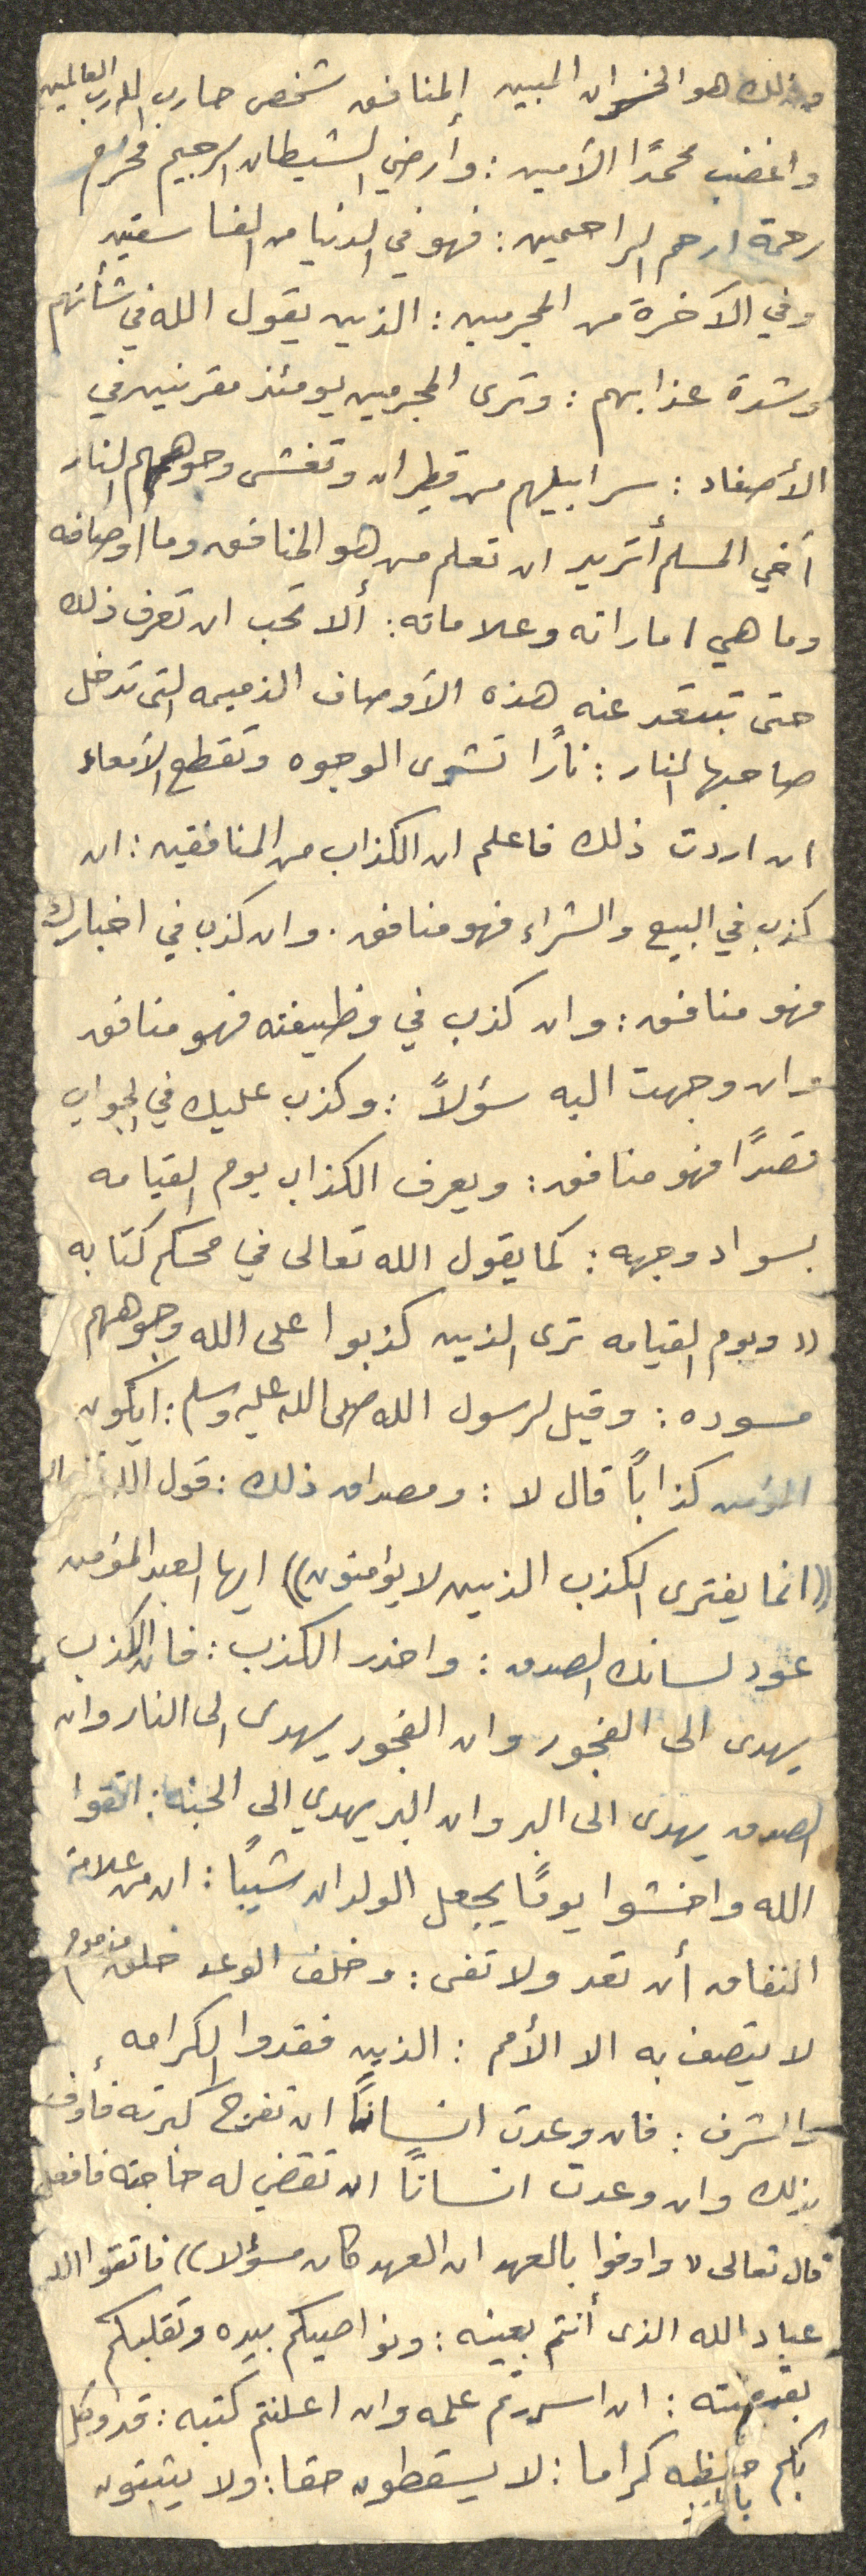 وذلك هو الخسران المبين المنافق شخص حارب الله رب العالمين
واغضب محمدًا الأمين : وأرضي الشيطان الرجيم فحرم
رحمة ارحم الراحمين : فهو في الدنيا من الفاسقين
وفي الآخرة من المجرمين : الذين يقول الله في شأنهم
وشدة عذابهم : وترى المجرمين يومئذ مقرنين في
الأصفاد : سرابيلهم من قطران وتغشى وجوههم النار
أخي المسلم أتريد ان تعلم من هو المنافق وما اوصافه
وما هي اماراته وعلاماته : ألا تحب ان تعرف ذلك
حتى تبتعد عنه هذه الأوصاف الذميمه التى تدخل
صاحبها النار : نارًا تشوى الوجوه وتقطع الأمعاء
ان اردت ذلك فاعلم ان الكذاب من المنافقين : ان
كذب في البيع والشراء فهو منافق . وان كذب في اخبارك
فهو منافق : وان كذب في وظيفته فهو منافق
وان وجهت اليه سؤلاً : وكذب عليك في الجواب
قصدًا فهو منافق : ويعرف الكذاب يوم القيامه
بسواد وجهه : كما يقول الله تعالى في محكم كتابه
(( ويوم القيامه ترى الذين كذبوا على الله وجوههم
مسوده : وقيل لرسول الله صلى الله عليه وسلم : ايكون
المؤمن كذابًا قال لا : ومصداق ذلك : قول الله
((انما يفترى الكذب الذين لا يؤامنون)) ايها العبد المؤمن
عود لسانك الصدق : واحذر الكذب : فان الكذب
يهدى الى الفجور وان الفجور يهدى الى النار وان
الصدق يهدى الى البر وان البر يهدي الى الجنه : اتقوا
الله واخشوا يومًا يجعل الولدان شيبًا : ان من علامة
النفاق أن تعد ولا تفى : وخلف الوعد خلق مذموم
لا يتصف به الا الأمم : الذين فقدوا الكرامه
والشرف : فان وعدت انسانًا ان تفرج كربته فأوف
بذلك وان وعدت انسانًا ان تقضي له حاجته فافعل
قال تعالى (( واوفوا بالعهد ان العهد كان مسؤلا )) فاتقوا الله
عباد الله الذى أنتم بعينه : ونواصيكم بيده وتقلبكم
: ان اسررتم علمه وان اعلنتم كتبه : قد وكل
بكم حفظه كراما : لا يسقطون حقا : ولا يثبتون